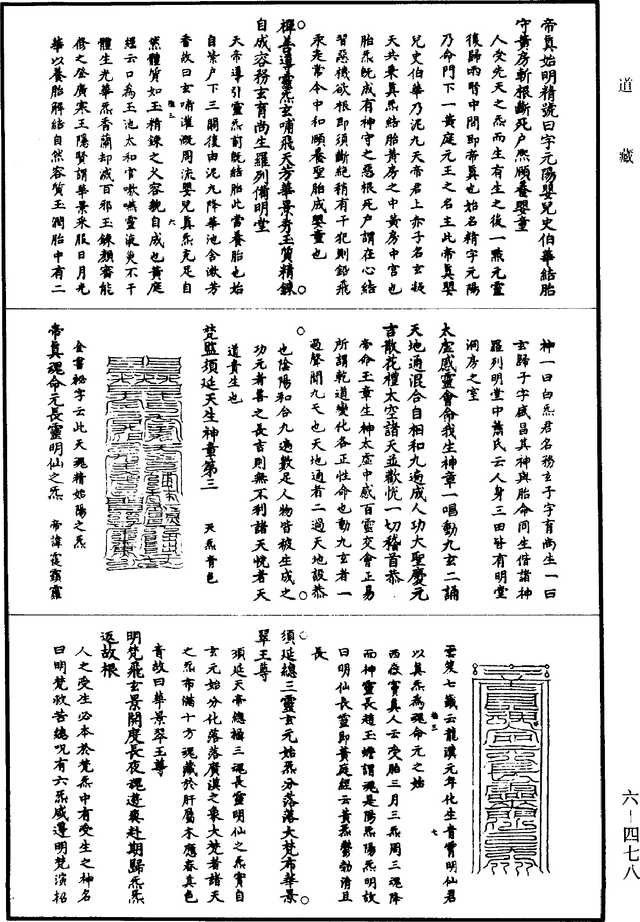 道藏
帝真始明精號曰字元陽嬰兒史伯華結胎
守黄房斬根斷死户炁頤養嬰童
人受先天之炁而生有生之後一點元靈
復歸兩腎中間即帝真也始名精字元陽
乃命門下一黄庭元王之名主此帝真嬰
兒史伯華乃泥九天帝君上赤子名玄
天共秉真炁結胎黄房之中黄房中宫也
胎炁既成有神守之惡根死户謂在心結
習惡機欲根即須斷絶稍有干犯則鉛飛
汞走常令中和頤養聖胎成嬰童也
禪善導靈炁玄嘯飛天芳華景秀玉質精鍊
自成容務玄育尚生羅列備明堂
天帝導引靈炁前既結胎此當養胎也始
自紫户下三關復由泥九降華池含漱芳
香故曰玄嘯灌溉周流嬰兒真炁充足自
然體質如玉精鍊之火容貌自成也黄庭
經云口為玉池太和官嗽嚥靈液災不干
體生光華炁香蘭却滅百邪玉鍊顏審能
修之登廣寒王隱賢謂華景采服日月光
華以養胎解結自然容質玉潤胎中有二
神一曰白炁君名務玄子字育尚生一曰
玄歸子字盛昌其神與胎命同生偕諸神
羅列明堂中蕭氏云人身三田皆有明堂
洞房之室
太虚感靈會命我生神章一唱動九玄二誦
天地通混合自相和九遍成人功大聖慶元
吉散花禮太空諸天並歡忻一切稽首恭
帝命玉章生神太虚中感百靈交會正易
所謂乾道變化各正性命也動九玄者一
過聲聞九天也天地通者二過天地設恭
也陰陽和合九遍數足人物皆被生成之
功元者善之長吉則無不利諸天悦者天
道貴生也
梵監須延天生神章第三 天炁青色
金書秘字云此天魂精始陽之炁
帝真魂命元長靈明仙之炁
雲笈七籤云龍漢元年化生青霄明仙君
以真炁為魂命元之始
西夜實真人云受胎三月三炁周三魂降
而神靈長趙玉蟾謂魂是陽炁陽炁明故
曰明仙長靈即黄庭經云黄炁鬱勃清且
長
須延總三靈玄元始炁分落落大梵布華景
翠玉尊
須延天帝總攝三魂長靈明仙之炁實自
玄元始分化落落廣漠之象大梵者諸天
之炁布滿十方魂藏於肝屬木應春真色
青故曰華景翠玉尊
明梵飛玄景開度長夜魂遊爽赴期歸炁炁
返故根
人之受生必本於梵炁中有受生之神名
曰明梵救苦總呪有六炁咸遵明梵演招
六－四七八